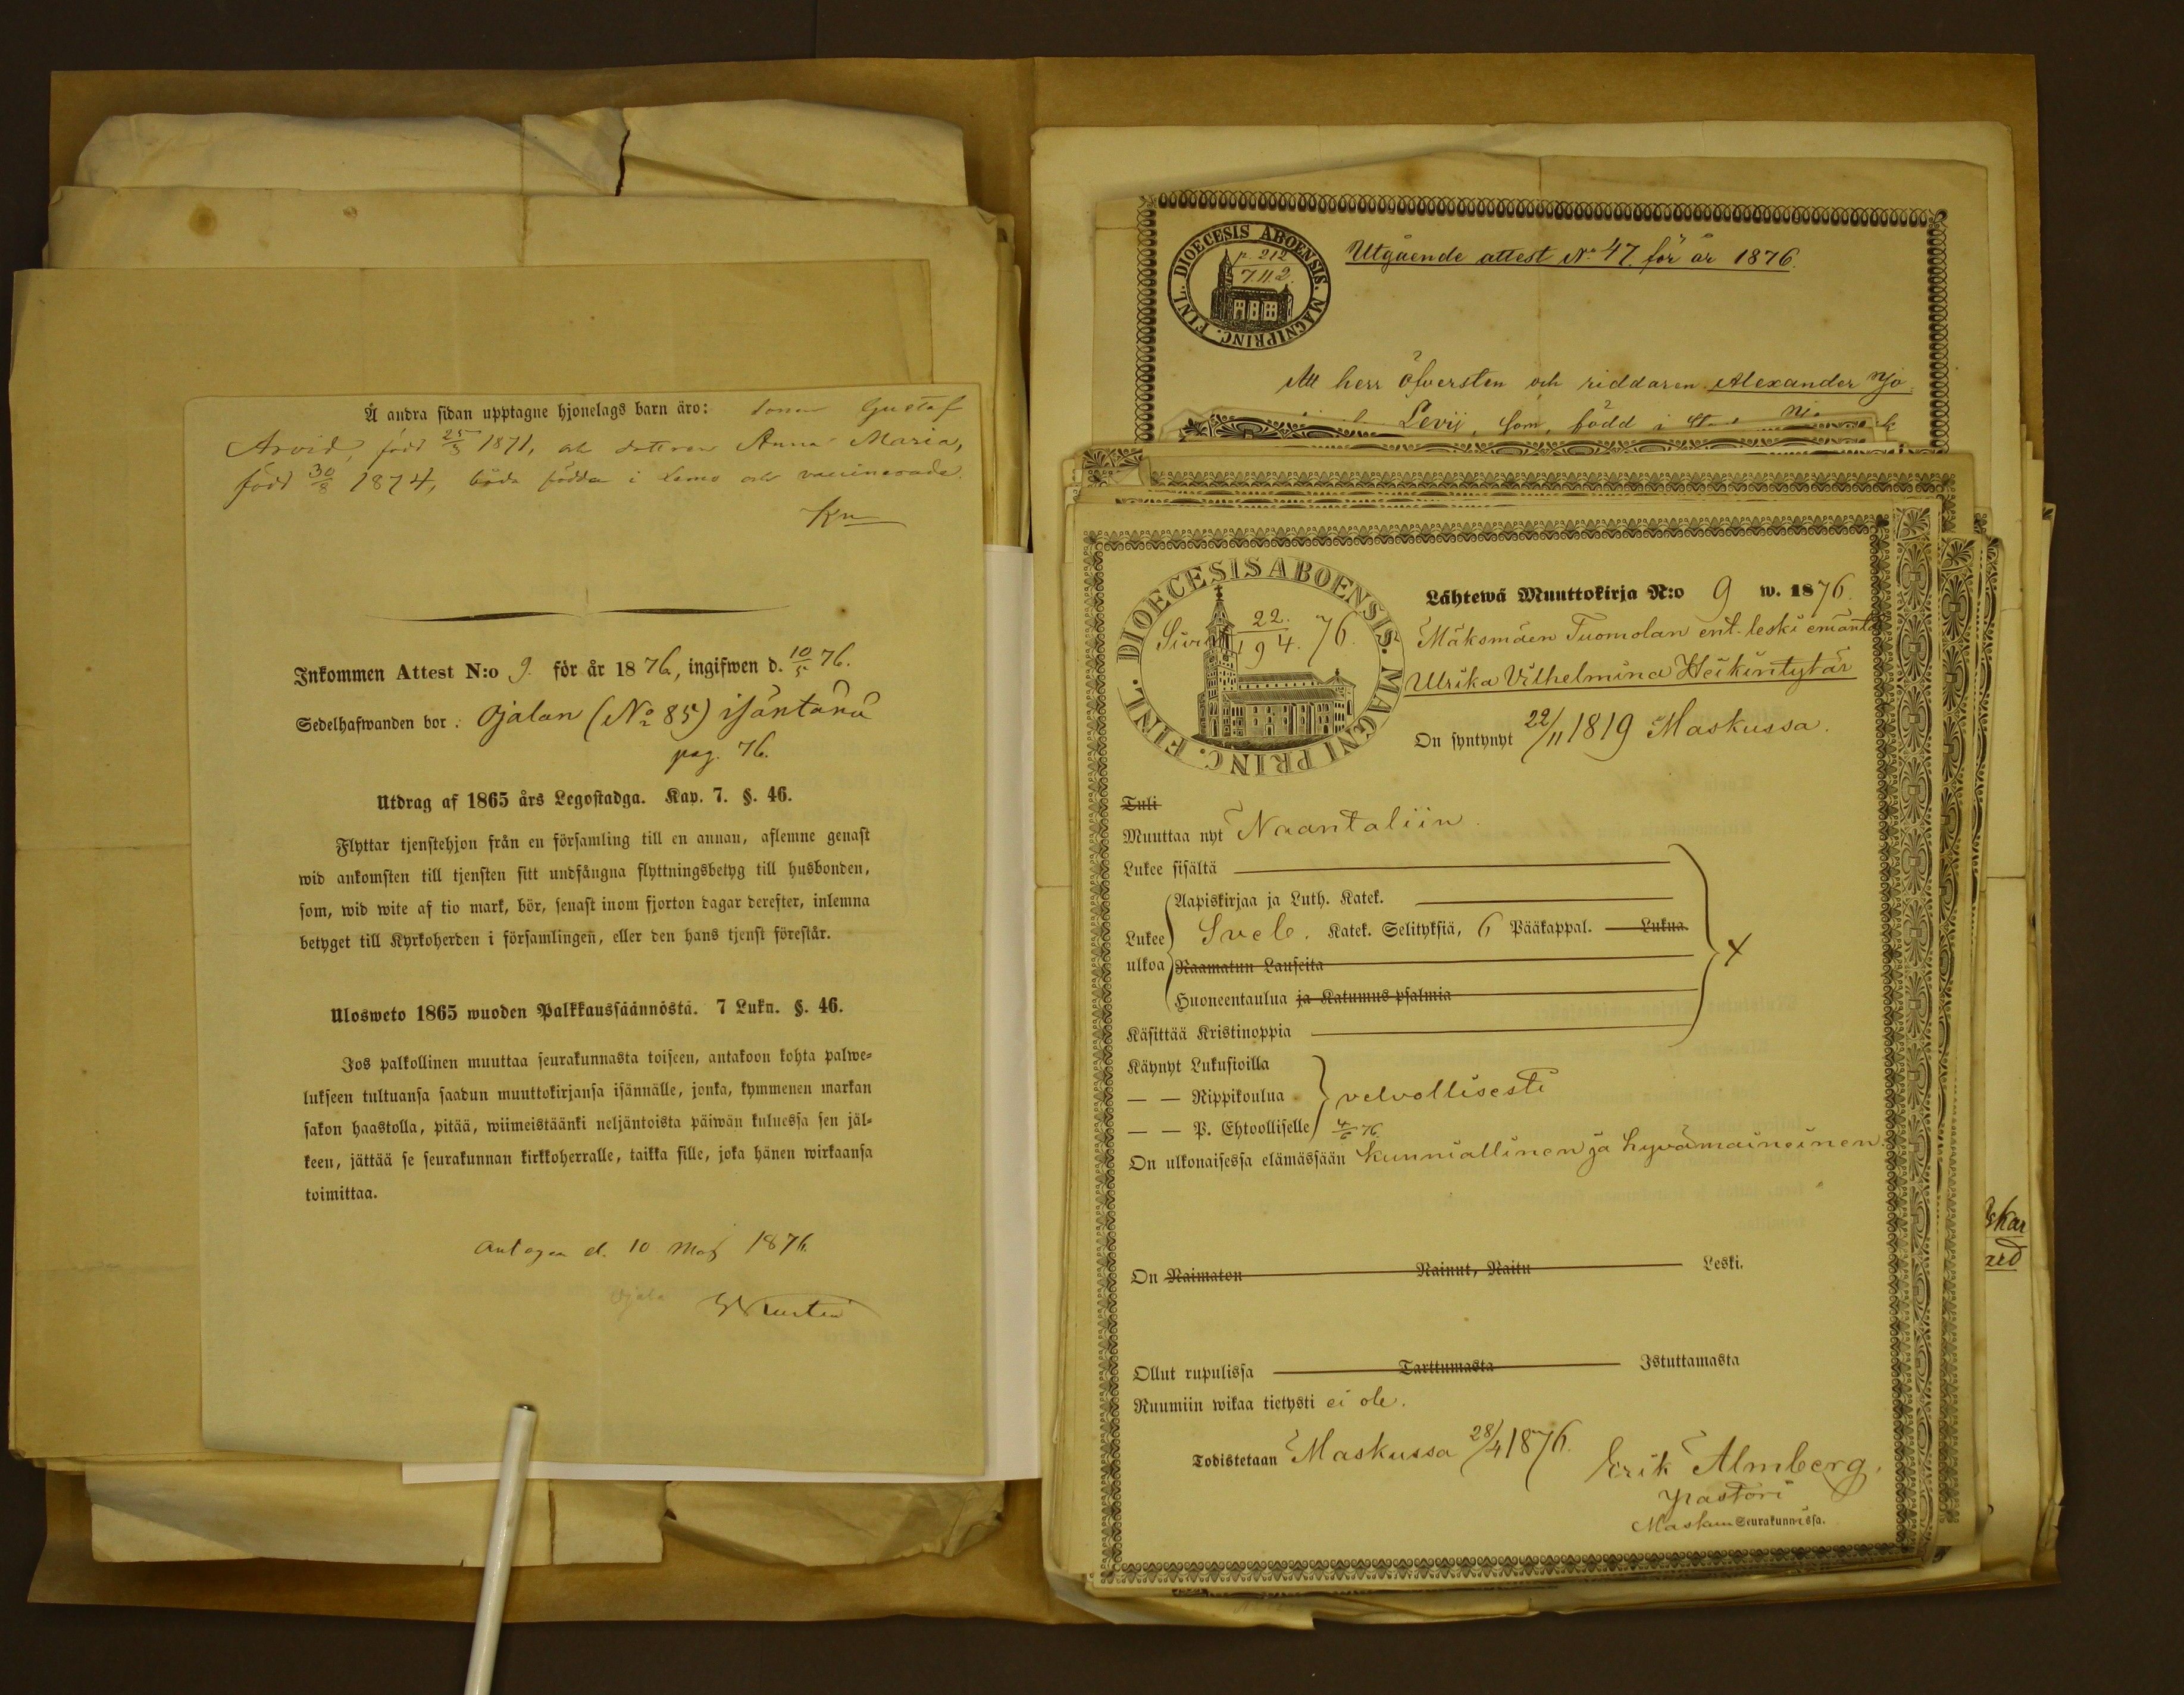 Å andra sidan upptagne hjonelags barn äro: sonen Gustaf
Arvid, född 25/3 1871, och dottren Anna Maria,
född 30/8 1874, båda födda i Lemo och vaccinerade.
Inkommen Attest N:o 9 för år 1876, ingifwen d. 10/5 76.
Sedelhafwanden bor: Ojalan (No 85) isäntänä
pag. 76.
Utdrag af 1865 års Legostadga. Kap. 7. §. 46.
Flyttar tjenstehjon från en församling till en annan, aflemne genast
wid ankomsten till tjensten sitt undfångna flyttningsbetyg till husbonden,
som, wid wite af tio mark, bör, senast inom fjorton dagar derefter, inlemna
betyget till Kyrkoherden i församlingen, eller den hans tjenst förestår.
Ulosweto 1865 wuoden Palkkaussäännöstä. 7 Luku. §. 46.
Jos palkollinen muuttaa seurakunnasta toiseen, antakoon kohta palwe-
lukseen tultuansa saadun muuttokirjansa isännälle, jonka, kymmenen markan
sakon haastolla, pitää, wiimeistäänki neljäntoista päiwän kuluessa sen jäl-
keen, jättää se seurakunnan kirkkoherralle, taikka sille, joka hänen wirkaansa
toimittaa.
Antagen d. 10 Maj 1876.
Ojala
FINL. DIOECESIS ABOENSIS. MAGNIPRINC.
p. 212
7.11.2.
Utgående attest No 47 för år 1876.
Att herr öfversten och riddaren Alexander
Levij, som, född i
FINL. DIOECESIS ABOENSIS. MAGNI PRINC.
22.
19 4. 76.
Lähtewä Muuttokirja N:o 9 w. 1876.
Mäksmäen Tuomolan ent. leski emäntä
Ulrika Vilhelmina Heikintytär
On syntynyt 22/11 1819 Maskussa.
Tuli
Muuttaa nyt Naantaliin.
Lukee sisältä
Aapiskirjaa ja Luth. Katek.
Lukee Sveb. Katek. Selityksiä, 6 Pääkappal. Lukua.
ulkoa Raamatun Lauseita
Huoneentaulua ja Katumus psalmia
Käsittää Kristinoppia
x
Käynyt Lukusioilla
— — Rippikoulua velvollisesti
— — P. Ehtoolliselle 4/6 76.
On ulkonaisessa elämässään kunniallinen ja hyvämaineinen.
On Naimaton Nainut, Naitu Leski.
Ollut rupulissa Tarttumasta Istuttamasta
Ruumiin wikaa tietysti ei ole.
Todistetaan Maskussa 28/4 1876.
Erik Almberg,
pastori
Maskun Seurakunnissa.